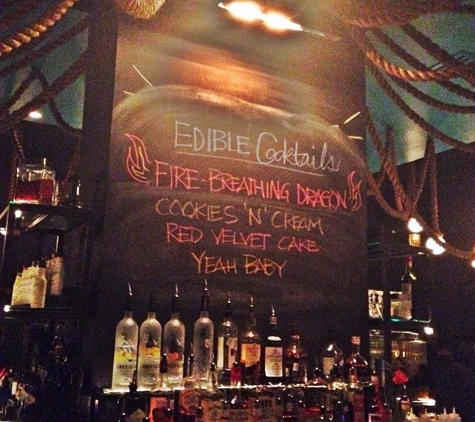 EDIBLE Cocktails
FIRE-BREATHING DRAGON
COOKIES 'N' CREAM
RED VELVET CAKE
YEAH BABY